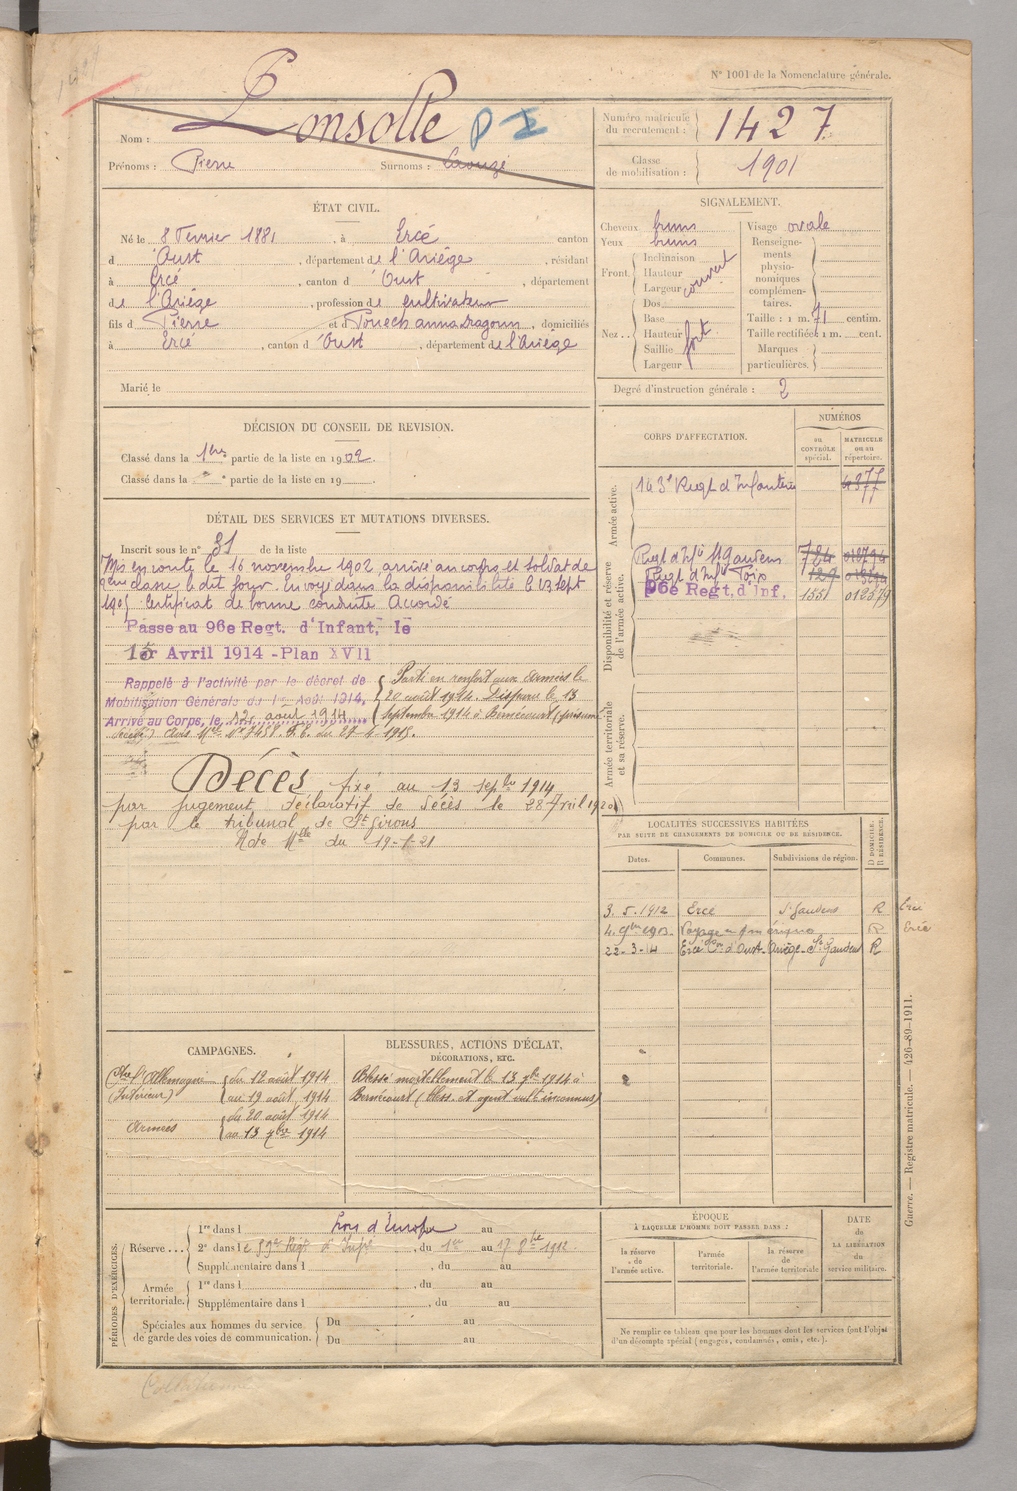 N° 1001 de la Nomenclature générale.
Nom : Ponsolle P I
Prénoms : Pierre Surnoms :
Numéro matricule du recrutement : 1427
Classe de mobilisation : 1901
ÉTAT CIVIL.
Né le 8 Février 1881, à Ercé canton
d'Oust, département de l'Ariège, résidant
à Ercé, canton d'Oust, département
de l'Ariège, profession de cultivateur
fils d Pierre et d Pouech anna Dragonn, domiciliés
à Ercé, canton d'Oust, département de l'Ariège
Marié le
SIGNALEMENT.
Cheveux bruns
Yeux bruns
Front. Inclinaison Hauteur Largeur couvert
Nez.. Dos Base Hauteur Saillie Largeur fort
Visage ovale
Renseignements physionomiques complémentaires.
Taille : 1 m. 71 centim.
Taille rectifiée : 1 m. cent.
Marques particulières.
Degré d'instruction générale : 2
DÉCISION DU CONSEIL DE REVISION.
Classé dans la 1ère partie de la liste en 1902.
Classé dans la e partie de la liste en 19 .
DÉTAIL DES SERVICES ET MUTATIONS DIVERSES.
Inscrit sous le n° 31 de la liste
Mis en route le 16 novembre 1902 arrivé au corps et soldat de
2ème classe le dit jour. Envoyé dans la disponibilité le 23 sept
1905 Certificat de bonne conduite Accordé
Passé au 96e Regt. d'Infant. le
1er Avril 1914 - Plan XVII
Rappelé à l'activité par le décret de
Mobilisation Générale du 1er Août 1914,
Arrivé au Corps, le 12 août 1914
Parti en renfort aux armées le
20 août 1914. Disparu le 13
septembre 1914 à Bernécourt (présumé
décédé) Avis Mel N° 7458. du 27-4-1915.
Décès fixé au 13 septbre 1914
par jugement déclaratif de décès le 28 Avril 1920
par le tribunal de St Girons
Note Mlle du 19-1-21
CORPS D'AFFECTATION.
NUMÉROS
au CONTRÔLE spécial.
MATRICULE ou au répertoire.
Armée active.
143e Regt d'Infanterie 4377
Disponibilité et réserve de l'armée active.
Regt d'Infie St Gaudens 784 018794
Regt d'Infie Foix 127
96e Regt. d'Inf. 1551 012379
Armée territoriale et sa réserve.
LOCALITÉS SUCCESSIVES HABITÉES
PAR SUITE DE CHANGEMENTS DE DOMICILE OU DE RÉSIDENCE.
Dates. Communes. Subdivisions de région. D DOMICILE. R RÉSIDENCE.
3.5.1912 Ercé St Gaudens R Ercé
Voyage en Amérique R Ercé
22-3-14 Ercé Con d'Oust - Ariège - St Gaudens R
CAMPAGNES.
Ctre l'Allemagne du 12 août 1914
(Intérieur) au 19 août 1914
Armées du 20 août 1914
au 13 7bre 1914
BLESSURES, ACTIONS D'ÉCLAT,
DÉCORATIONS, ETC.
Blessé mortellement le 13 7bre 1914 à
Bernécourt (bless. et agent vulnt inconnus)
PÉRIODES D'EXERCICES.
Réserve... 1re dans l hors d'Europe au
2e dans le 59e Regt d'Infie, du 1er au 17 8bre 1912
Supplémentaire dans l , du au
Armée territoriale. 1re dans l , du au
Supplémentaire dans l , du au
Spéciales aux hommes du service de garde des voies de communication. Du au
Du au
ÉPOQUE
À LAQUELLE L'HOMME DOIT PASSER DANS :
la réserve de l'armée active.
l'armée territoriale.
la réserve de l'armée territoriale
DATE de LA LIBÉRATION du service militaire.
Ne remplir ce tableau que pour les hommes dont les services font l'objet
d'un décompte spécial (engagés, condamnés, omis, etc.).
Guerre. — Registre matricule. — 426-89-1911.